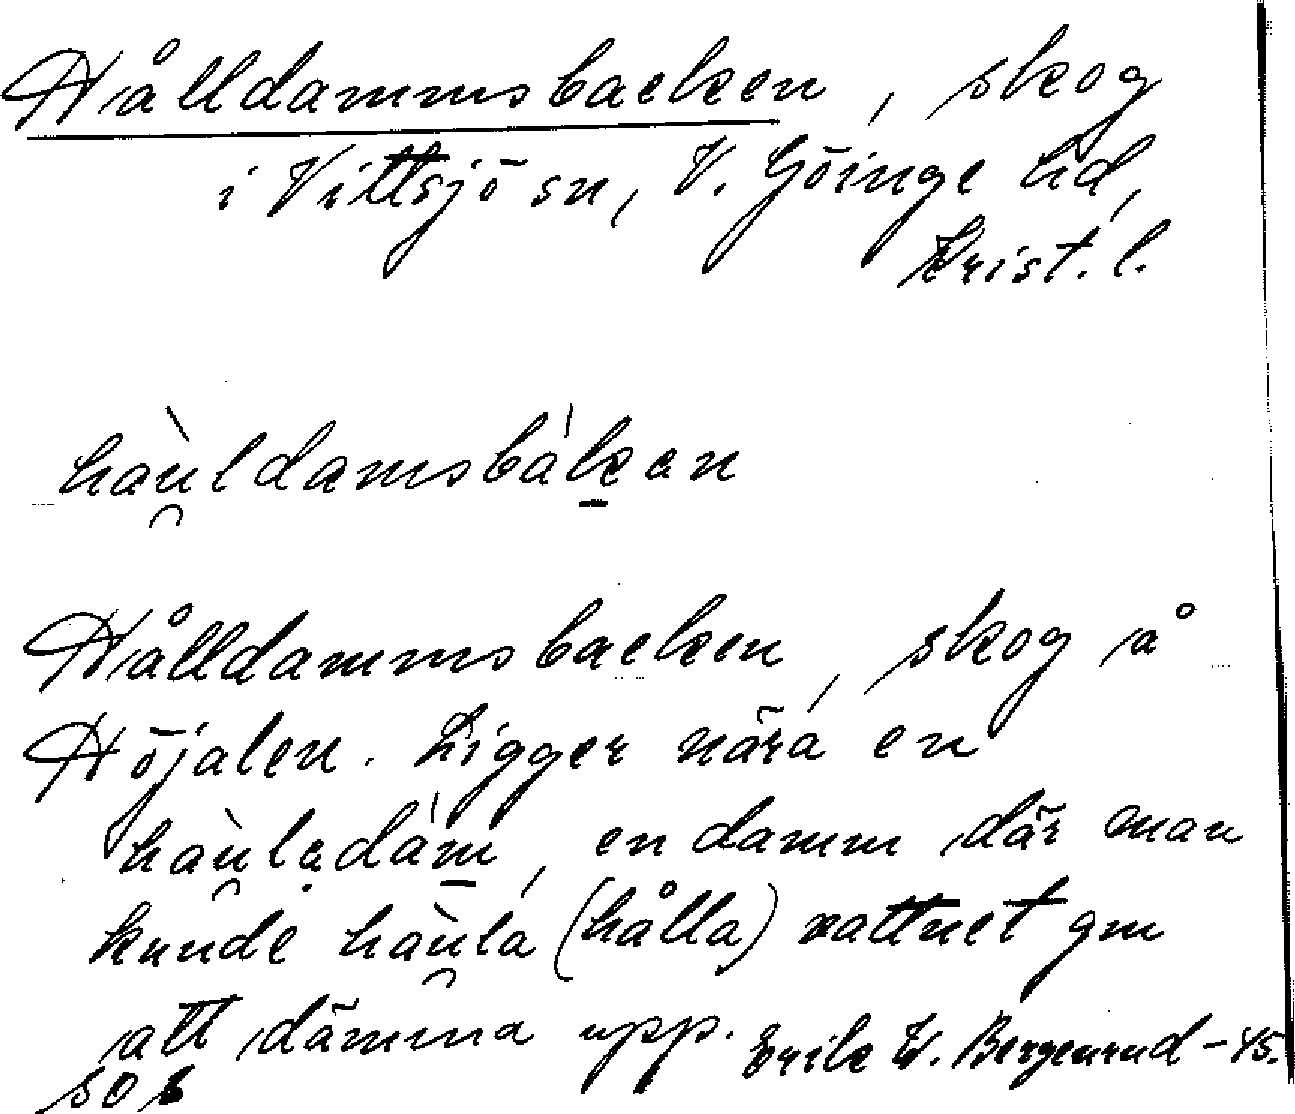 Hålldammsbacken, skog
i Vittsjö sn, V. Göinge hd,
Krist. l.
hàu̯ldamsbák̠an
Hålldammsbacken, skog å
Höjalen. Ligger nära en
hàu̯lạdám̠, en damm där man
kunde hàu̯la (hålla) vattnet gm
att dämma upp. Erik W. Bergenrud -45.